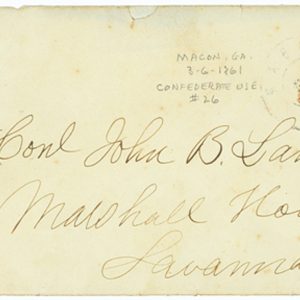 MACON, GA.
3-6-1861
CONFEDERATE USE
#26
Honl John B. Lam
Marshall Hou
Savanna